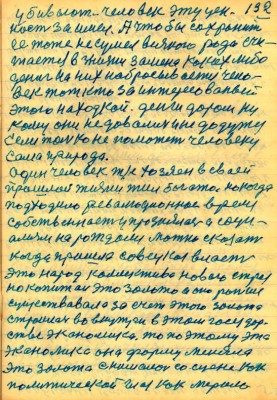 убивают. человек эту цен- 132
ность за ими. А чтобы сохранит
ее тоже не сумел всякого рода счи-
тается в жизни замена каких либо
денег на них набрасывается чело-
век тот кто заинтересованый
этого находкой. деньги дороги ни
кому они не давались и не дадуть
если только не поможет человеку
сама природа.
Один человек тже хозяен в своей
прошлой жизни жил богато. но когда
подходило революционое время
собственость и прозвищая а соци-
ализм на рождали можно сказать
когда пришла советская власть
Это народ колективо нового строя
но копитал это золото оно раньше
существавала за счет этого золота
строилась во внутри в этом государ-
стве экономика. то поэтому эта
экономика она форму меняла
Это золота снималось со сцене как
политической шаг как мерило